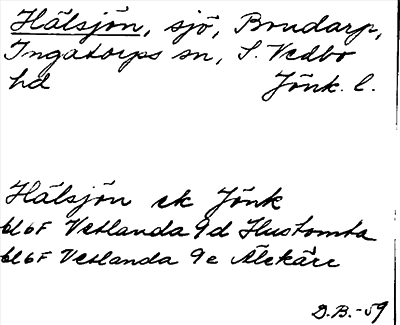 Hälsjön, sjö, Brudarp,
Ingatorps sn, S. Vedbo
hd Jönk. l.
Hälsjön ek Jönk
6F Vetlanda 9d Hustomta
6F Vetlanda 9e Älekärr
D.B.-59